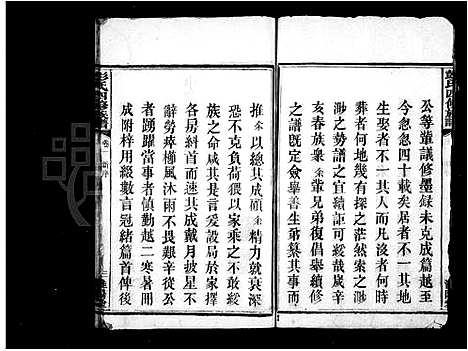 公等輩議修墨録未克成篇越至
今忽忽四十載矣居者不一其地
生娶者不一其人而凡卒者何時
葬者何地幾有探之茫然索之渺
渺之勢譜之宜續詎可緩哉歲辛
亥春族衆余輩兄弟復倡舉續修
之譜既定僉舉善生弟纂其事而
推余以總其成碩余精力就衰深
恐不克負荷猥以家乘之不敢綏
族之命咸其是言爰設局於家擇
辭勞瘁櫛風沐雨不畏艱辛從公
者踴躍當事者偵勤越二寒暑而
成附梓用綴數言冠緒篇首俾後
彭氏四修族譜
卷一